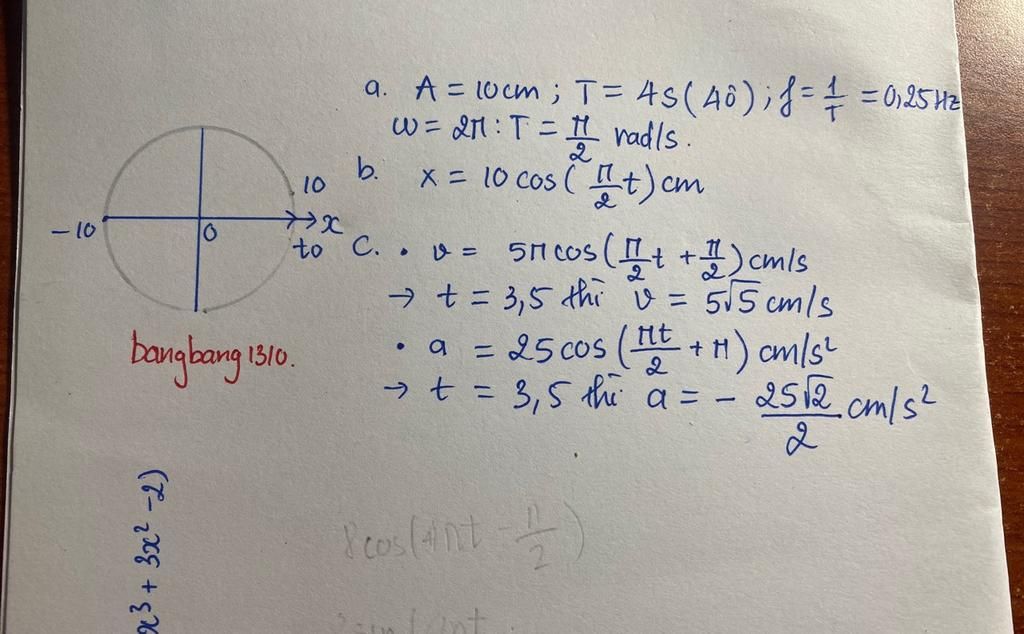 a. A = 10cm ; T = 4s (4ô) ; f = 1/T = 0,25Hz
ω = 2π : T = π/2 rad/s.
b. x = 10 cos( π/2 t) cm
10
-10
0
x
to
c. • v = 5π cos( π/2 t + π/2 ) cm/s
→ t = 3,5 thì v = 5√5 cm/s
• a = 25 cos( πt/2 + π ) cm/s²
→ t = 3,5 thì a = - 25√2/2 cm/s²
bangbang1310.
x³ + 3x² - 2)
8cos(4πt - π/2)